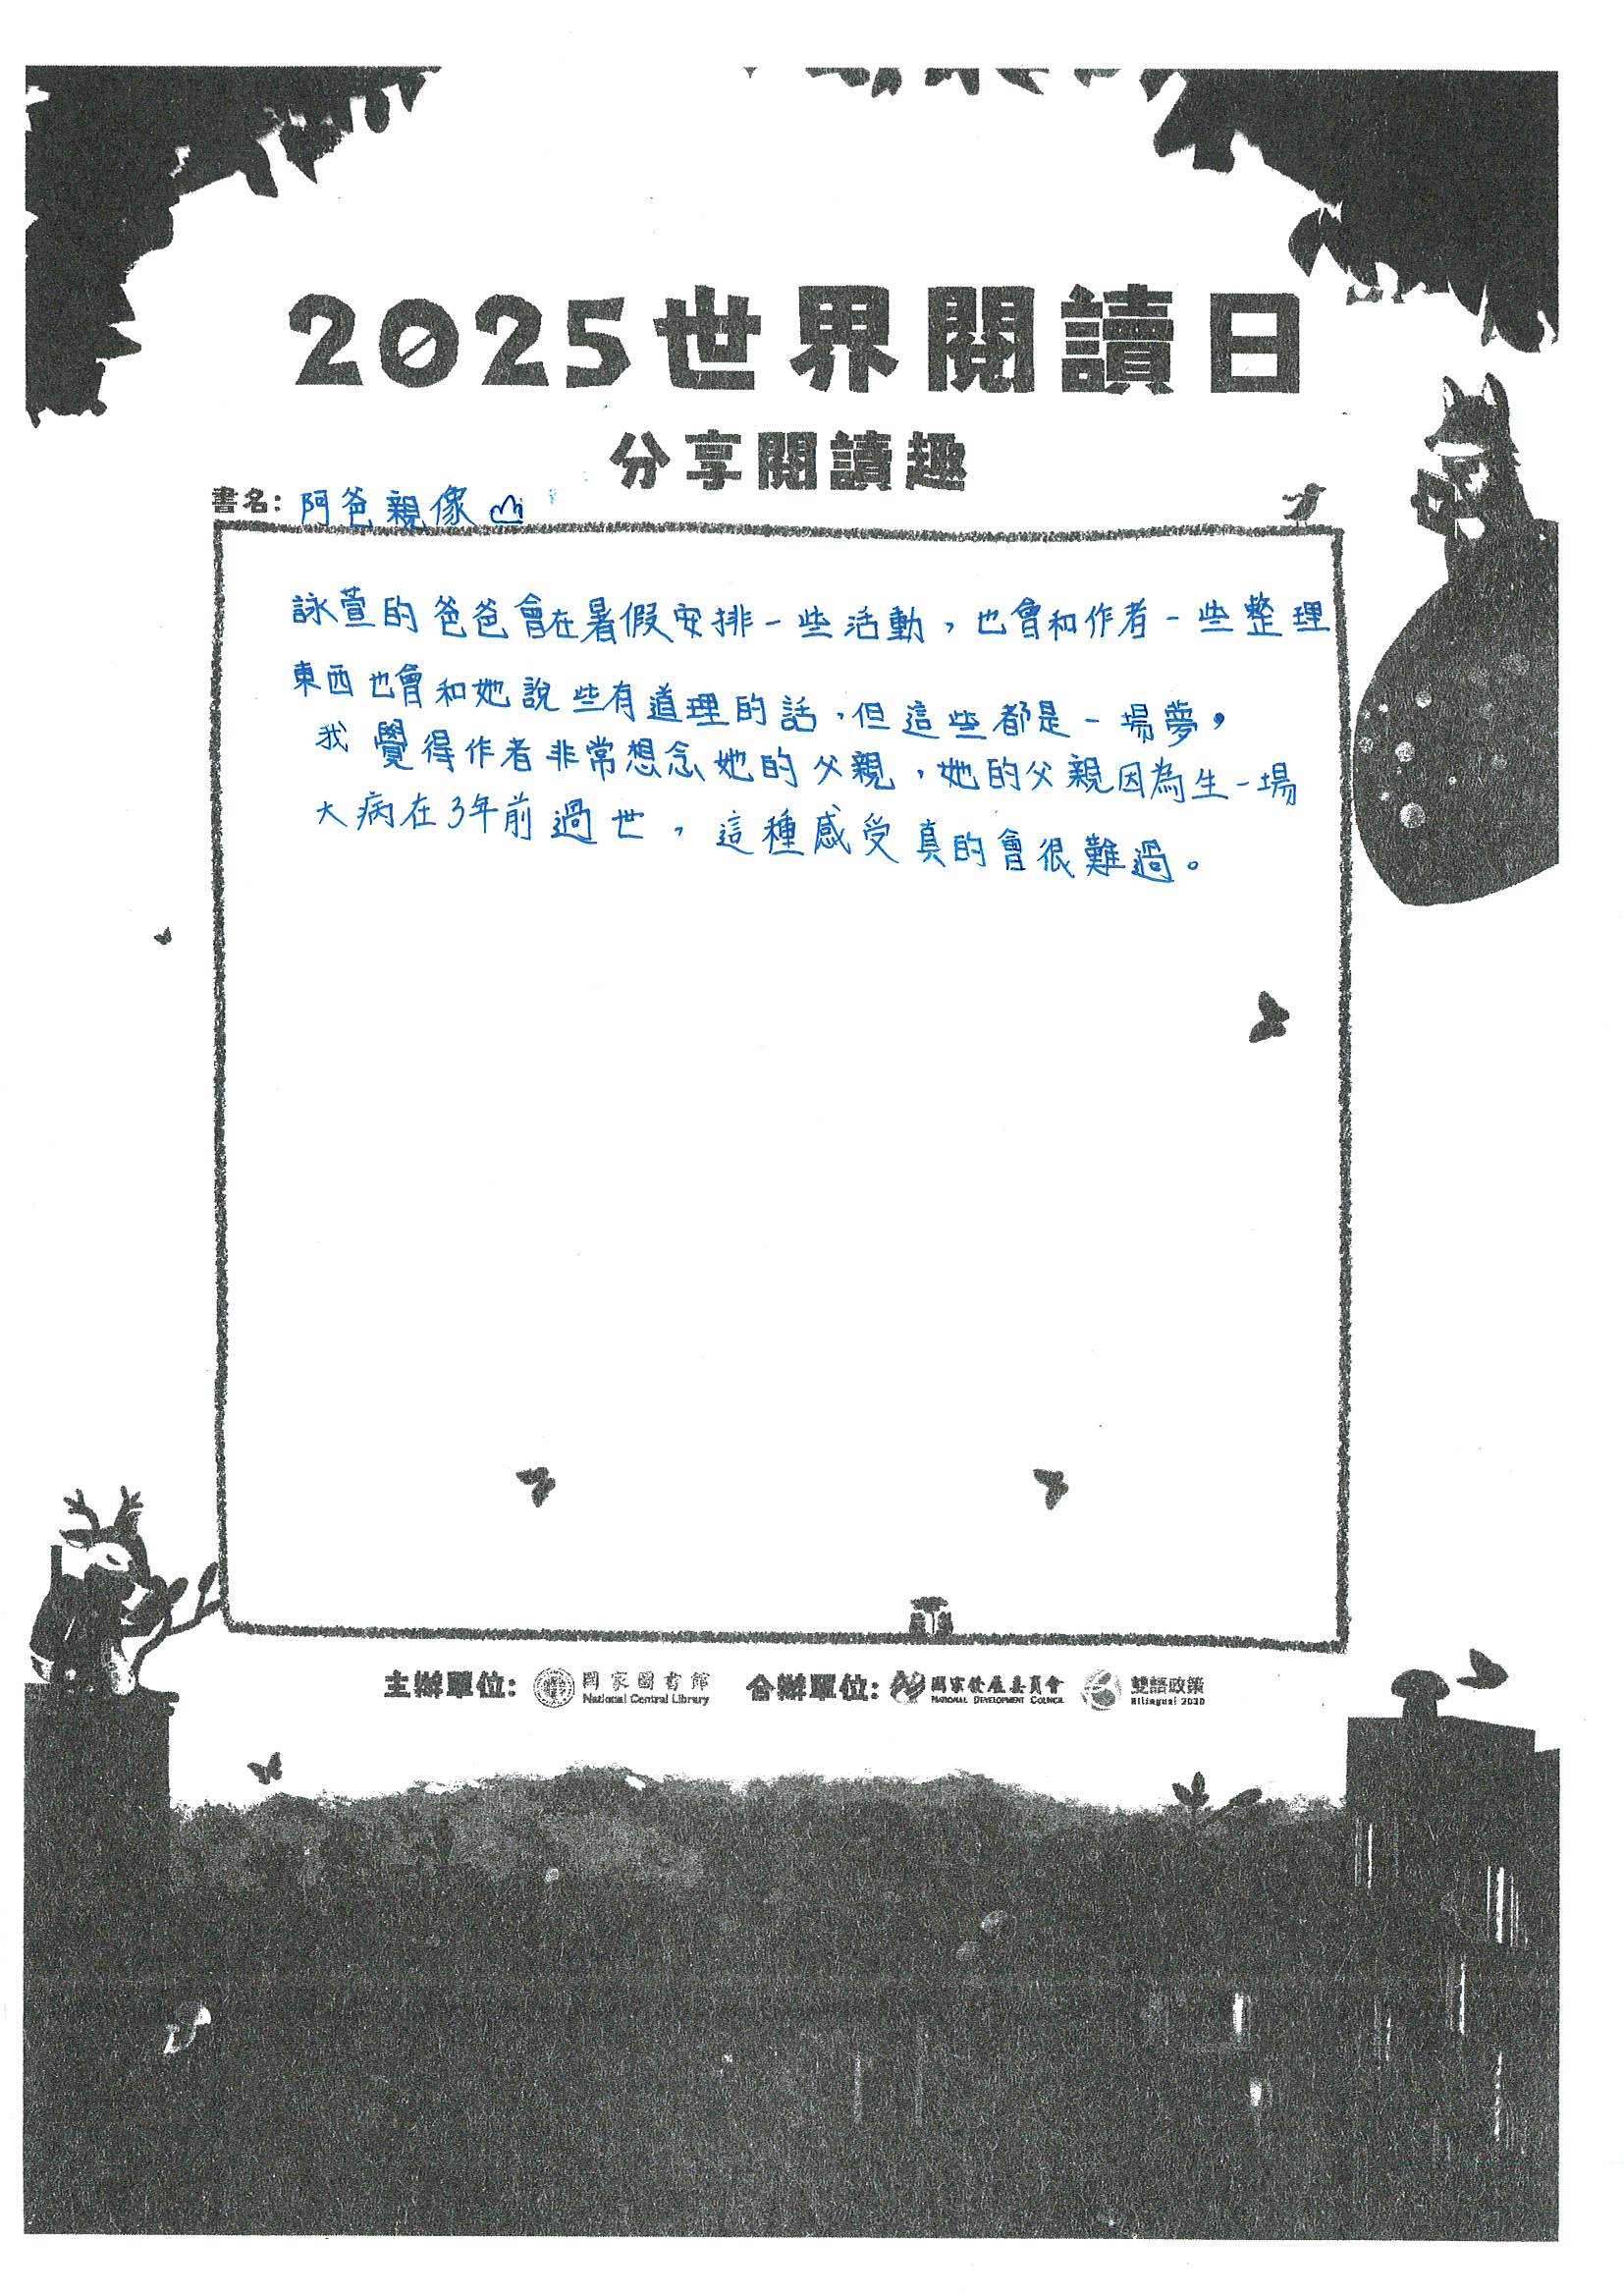 2025世界閱讀日
分享閱讀趣
書名：阿爸親像山
詠萱的爸爸會在暑假安排一些活動，也會和作者一些整理
東西也會和她說些有道理的話，但這些都是一場夢，
我覺得作者非常想念她的父親，她的父親因為生一場
大病在3年前過世，這種感受真的會很難過。
主辦單位：國家圖書館 National Central Library 合辦單位：國家發展委員會 NATIONAL DEVELOPMENT COUNCIL 雙語政策 Bilingual 2030